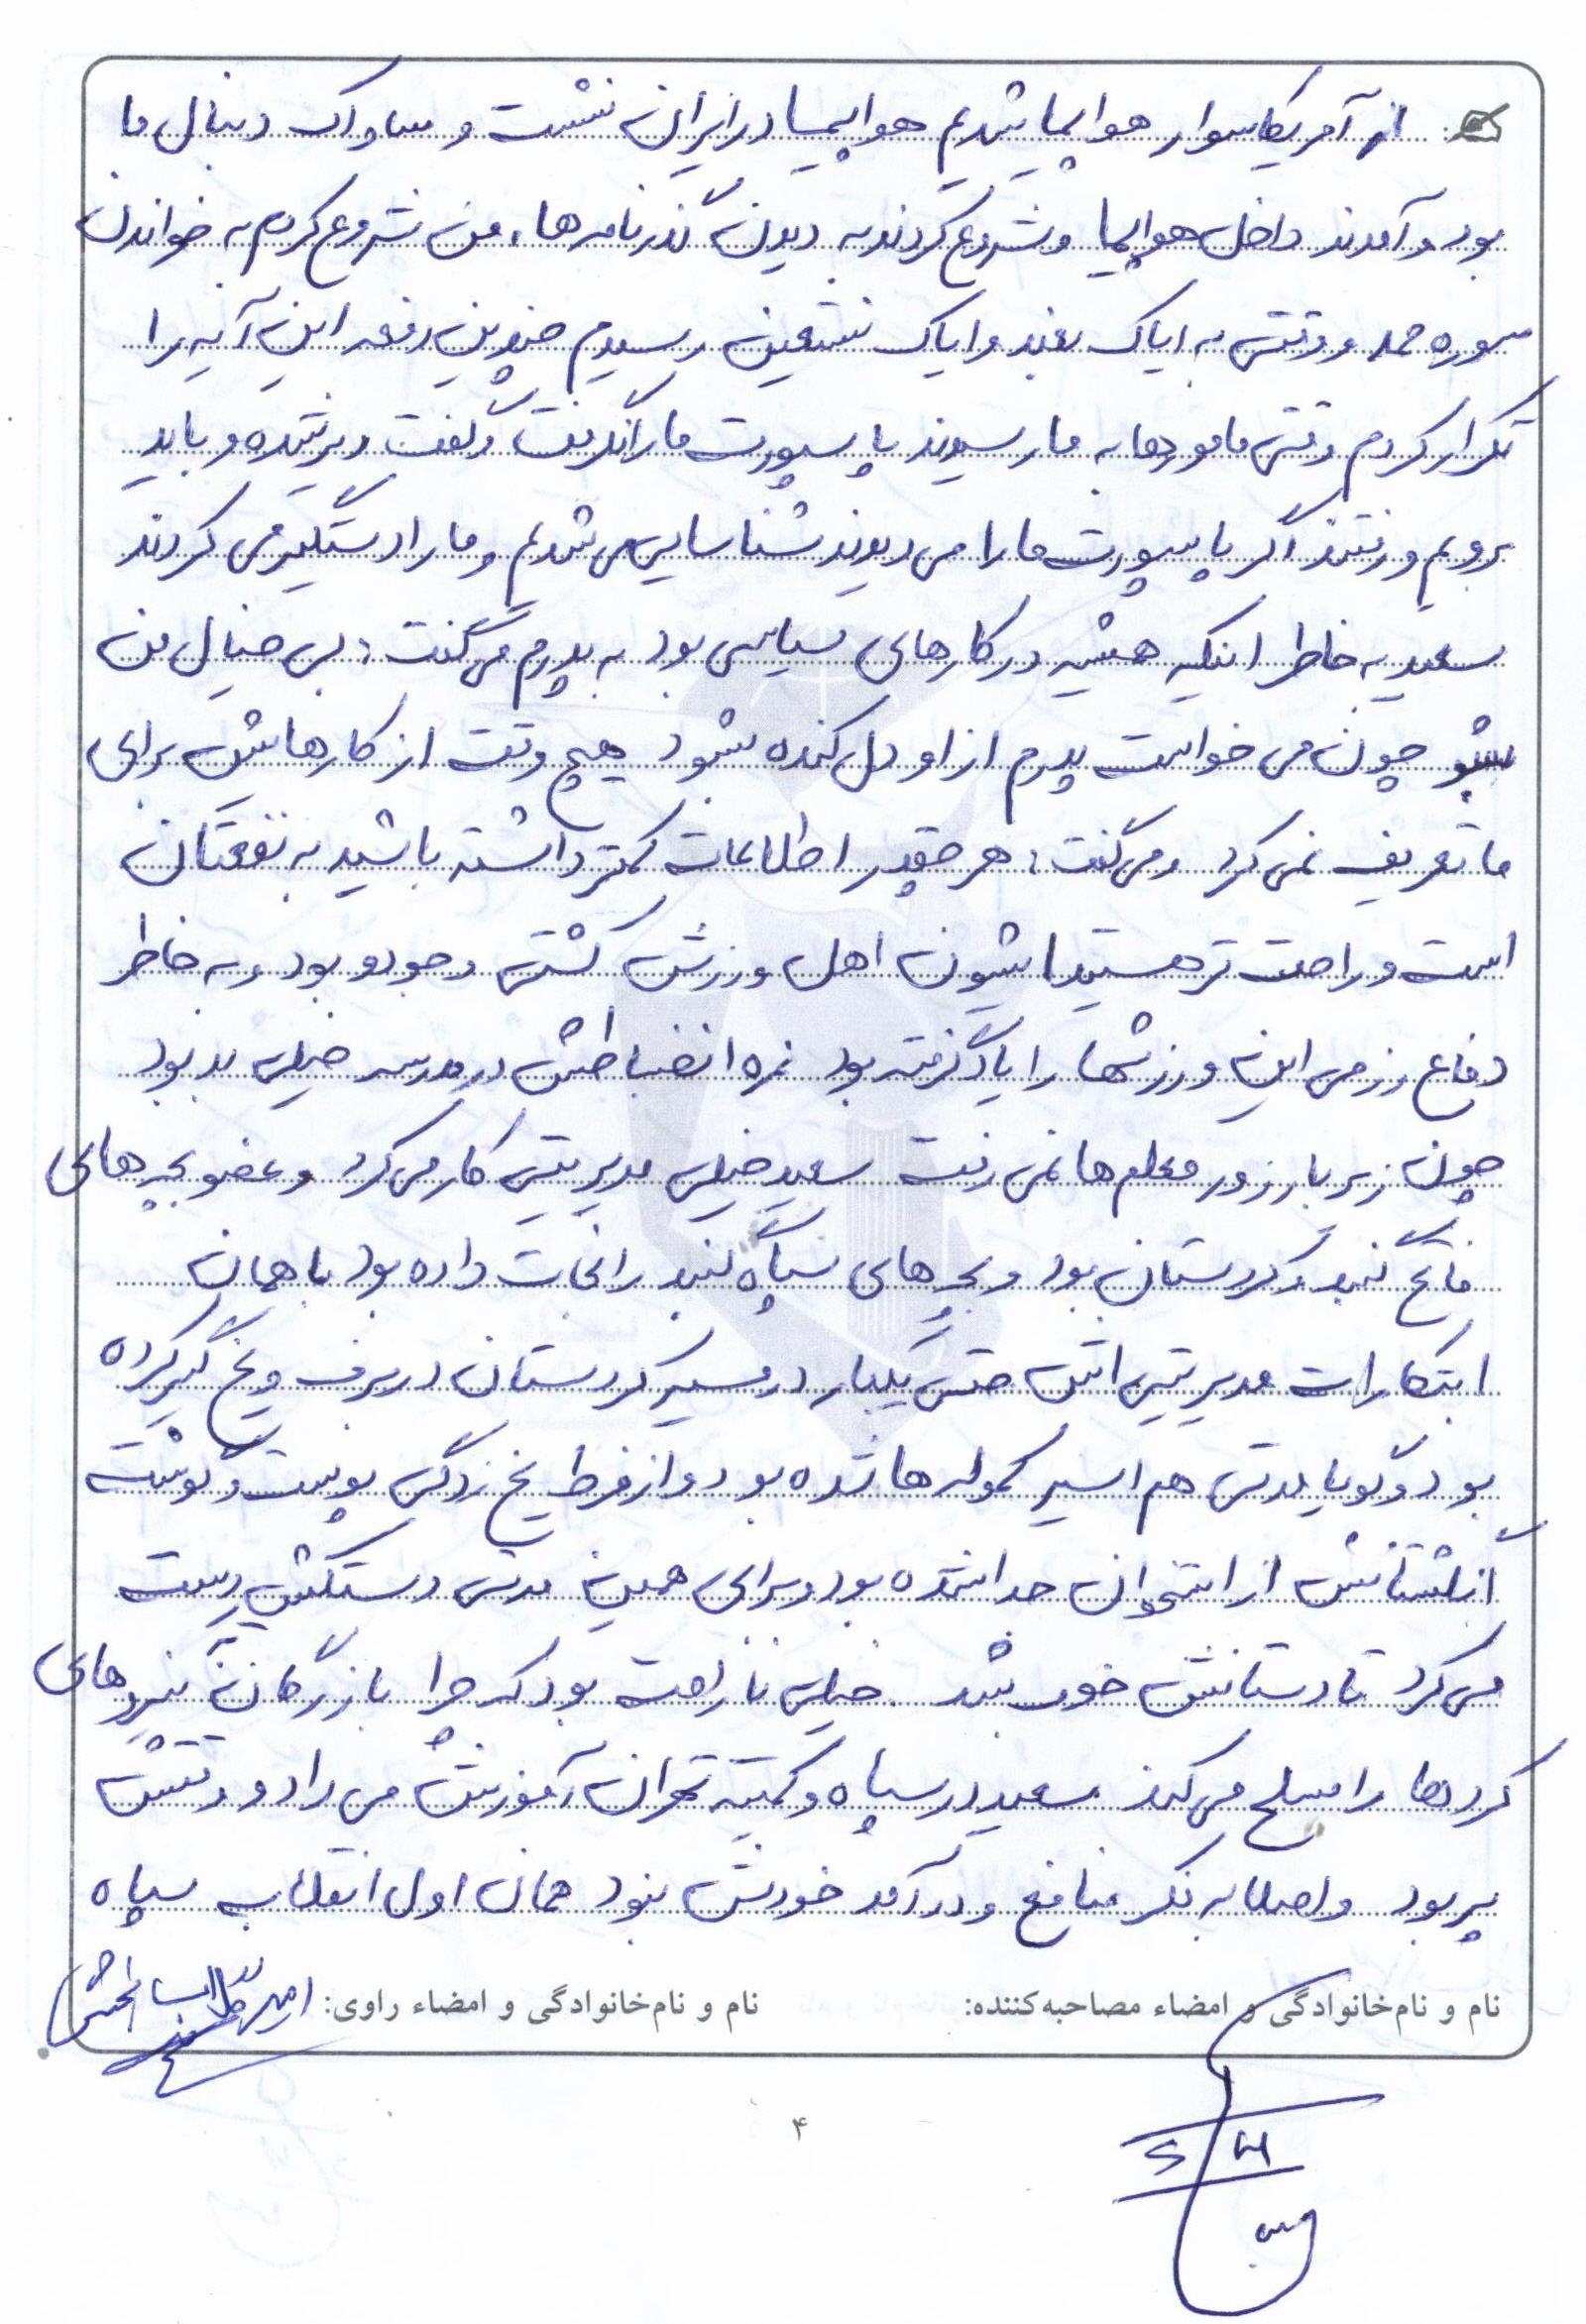 از آمریکا سوار هواپیما شدیم هواپیما در ایران نشست و ساواک دنبال ما
بود و آمدند داخل هواپیما و شروع کردند به دیدن گذرنامه‌ها، من شروع کردم به خواندن
سوره حمد وقتی به ایاک نعبد و ایاک نستعین رسیدم چندین دفعه این آیه را
تکرار کردم وقتی مامورها به ما رسیدند پاسپورت ما را نگرفت و گفت دیر شده و باید
برویم و رفتند اگر پاسپورت ما را می دیدند شناسایی می شدیم و ما را دستگیر می کردند
سعید به خاطر اینکه همیشه در کارهای سیاسی بود به پدرم می گفت: بی خیال من
بشو چون می خواست پدرم از او دل کنده شود هیچ وقت از کارهایش برای
ما تعریف نمی کرد و می گفت: هر چقدر اطلاعات کمتر داشته باشید به نفعتان
است و راحت تر هستید ایشون اهل ورزش کشتی و جودو بود، به خاطر
دفاع رزمی این ورزشها را یاد گرفته بود نمره انضباطش در مدرسه خیلی بد بود
چون زیر بار زور معلم ها نمی رفت سعید خیلی مدیریتی کار می کرد و عضو بچه های
فاتح گنبد و کردستان بود و بچه های سپاه گنبد را نجات داده بود با همان
ابتکارات مدیریتی اش حتی یکبار در مسیر کردستان در برف و یخ گیر کرده
بود و گویا مدتی هم اسیر کموله ها شده بود و از فرط یخ زدگی پوست و گوشت
انگشتانش از استخوان جدا شده بود و برای همین مدتی دستکش دست
می کرد تا دستانش خوب شد. خیلی ناراحت بود که چرا بازرگان نیروهای
کردها را مسلح می کند سعید در سپاه و کمیته تهران آموزش می داد و وقتش
پر بود و اصلا به فکر منافع و درآمد خودش نبود همان اول انقلاب سپاه
نام و نام‌خانوادگی و امضاء مصاحبه‌کننده:
نام و نام‌خانوادگی و امضاء راوی: امیر
۴